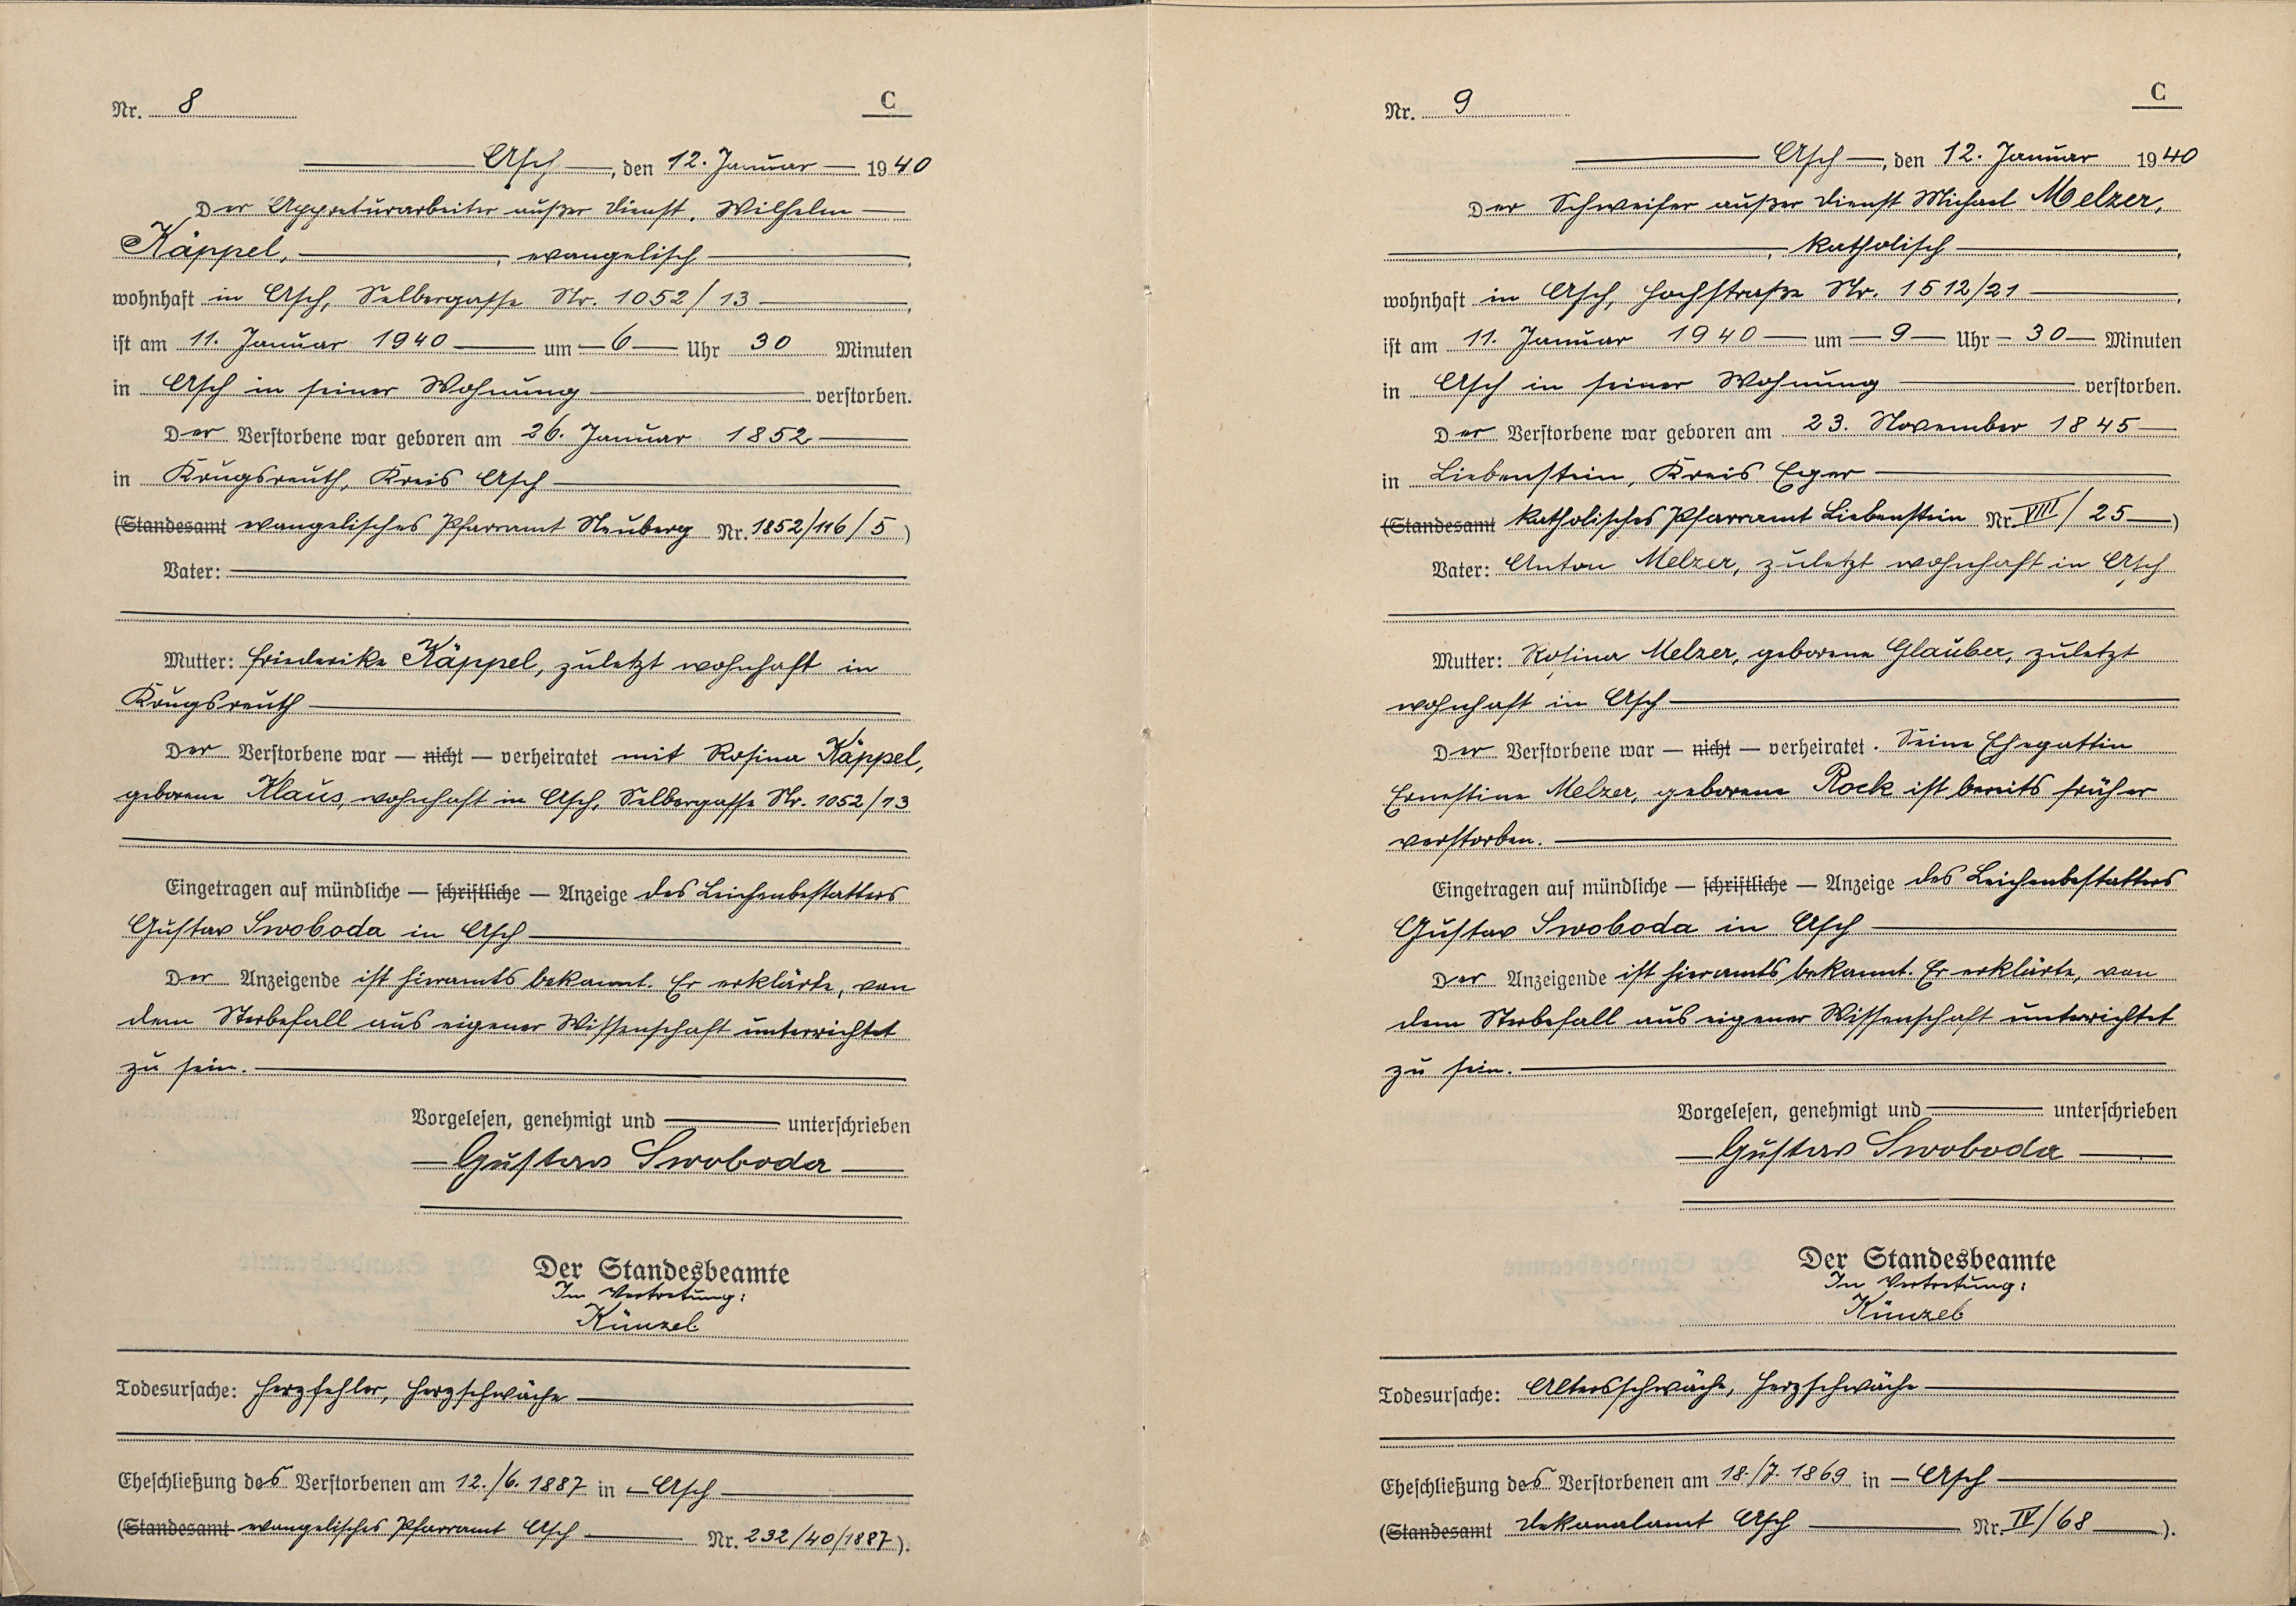 Nr. 8
C
Asch, den 12. Januar 1940
Der Appreturarbeiter außer Dienst, Wilhelm
Käppel, , evangelisch ,
wohnhaft in Asch, Selbergasse Nr. 1052/13 ,
ist am 11. Januar 1940 um 6 Uhr 30 Minuten
in Asch in seiner Wohnung verstorben.
Der Verstorbene war geboren am 26. Januar 1852
in Krugsreuth, Kreis Asch
(Standesamt evangelisches Pfarramt Neuberg Nr. 1852/116/5 )
Vater:
Mutter: Friederike Käppel, zuletzt wohnhaft in
Krugsreuth
Der Verstorbene war — nicht — verheiratet mit Rosina Käppel,
geborene Klaus, wohnhaft in Asch, Selbergasse Nr. 1052/13
Eingetragen auf mündliche — schriftliche — Anzeige des Leichenbestatters
Gustav Swoboda in Asch
Der Anzeigende ist hieramts bekannt. Er erklärte, von
dem Sterbefall aus eigener Wissenschaft unterrichtet
zu sein.
Vorgelesen, genehmigt und unterschrieben
Gustav Swoboda
Der Standesbeamte
In Vertretung:
Künzel
Todesursache: Herzfehler, Herzschwäche
Eheschließung des Verstorbenen am 12./6. 1887 in Asch
(Standesamt evangelisches Pfarramt Asch Nr. 232/40/1887 ).
Nr. 9
C
Asch, den 12. Januar 1940
Der Schweifer außer Dienst Michael Melzer,
, katholisch ,
wohnhaft in Asch, Hochstraße Nr. 1512/21 ,
ist am 11. Januar 1940 um 9 Uhr 30 Minuten
in Asch in seiner Wohnung verstorben.
Der Verstorbene war geboren am 23. November 1845
in Liebenstein, Kreis Eger
(Standesamt katholisches Pfarramt Liebenstein Nr. VIII/25 )
Vater: Anton Melzer, zuletzt wohnhaft in Asch
Mutter: Rosina Melzer, geborene Glauber, zuletzt
wohnhaft in Asch
Der Verstorbene war — nicht — verheiratet. Seine Ehegattin
Ernestine Melzer, geborene Rock ist bereits früher
verstorben.
Eingetragen auf mündliche — schriftliche — Anzeige des Leichenbestatters
Gustav Swoboda in Asch
Der Anzeigende ist hieramts bekannt. Er erklärte, von
dem Sterbefall aus eigener Wissenschaft unterrichtet
zu sein.
Vorgelesen, genehmigt und unterschrieben
Gustav Swoboda
Der Standesbeamte
In Vertretung:
Künzel
Todesursache: Altersschwäche, Herzschwäche
Eheschließung des Verstorbenen am 18./7. 1869 in Asch
(Standesamt Dekanalamt Asch Nr. IV/68 ).